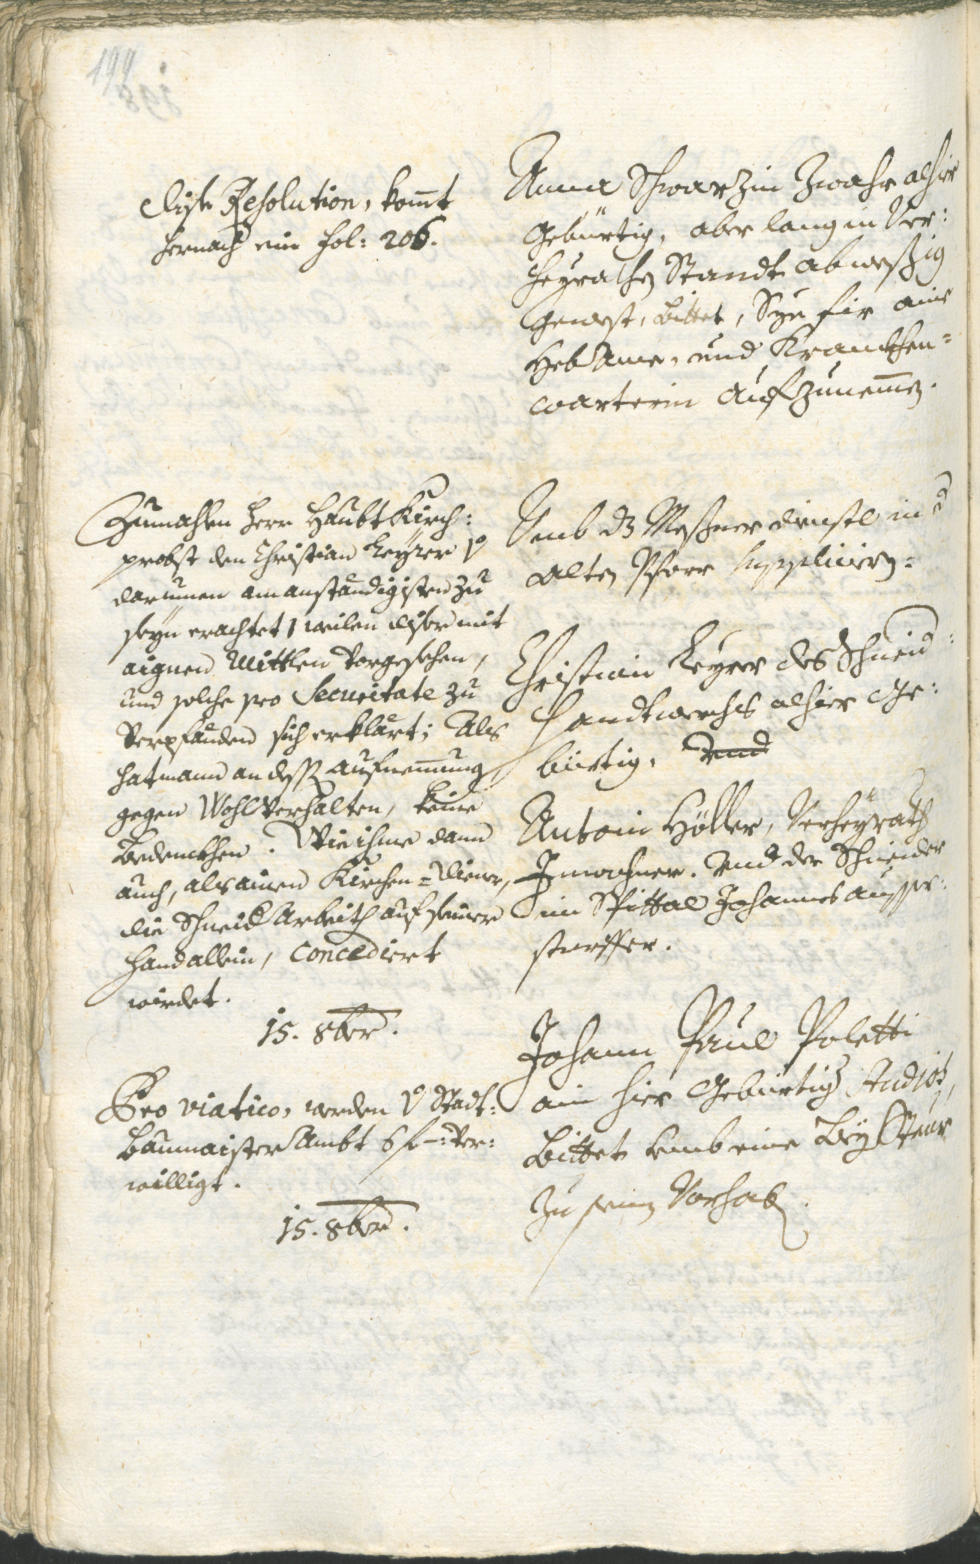 199
dise Resolution, komt
hernach ein fol: 206.
Anna Schwarzin Zwahr alhier
Gebürtig, aber lang in Ver:
heyrathen Standt abwesßig
Gewest, bittet, Sye für eine
Heb Ame, und Krankhen=
warterin aufzunemen.
Zumahlen Herr Haubt Kirch:
probst den Christian Keyrer
darunnen am anständigisten zu
seyn erachtet, weilen diser mit
aignen Mittlen vorgesehen,
und solche pro Securitate zu
Verpfänden sich erklärt; Als
hat mann an dessen aufnemung
gegen Wohlverhalten, keine
Bedenckhen. Wie ihme dann
auch, als ainen Kirchen=Diener,
die Schneid Arbeith auf seiner
Hand allein, concediert
wirdet.
15. 8ber.
Umb dz Mesßner dienstl in d
alten Pfarr suppliciern=
Christian Keyrer des Schneid:
Handtwerchs alhier Ge:
bürtig, Und
Antoni Höller, Verheyrath
Inwohner. Und der Schneider
im Spittal Johannes Ausser:
storffer.
Pro viatico, werden Stadt=
Baumaister Ambt 6 f –: Ver:
willigt.
15. 8ber.
Johann Paul Poletti
ain hier Gebürtiger Studios,
bittet umb eine Beysteur
zu sein Vorhaben.